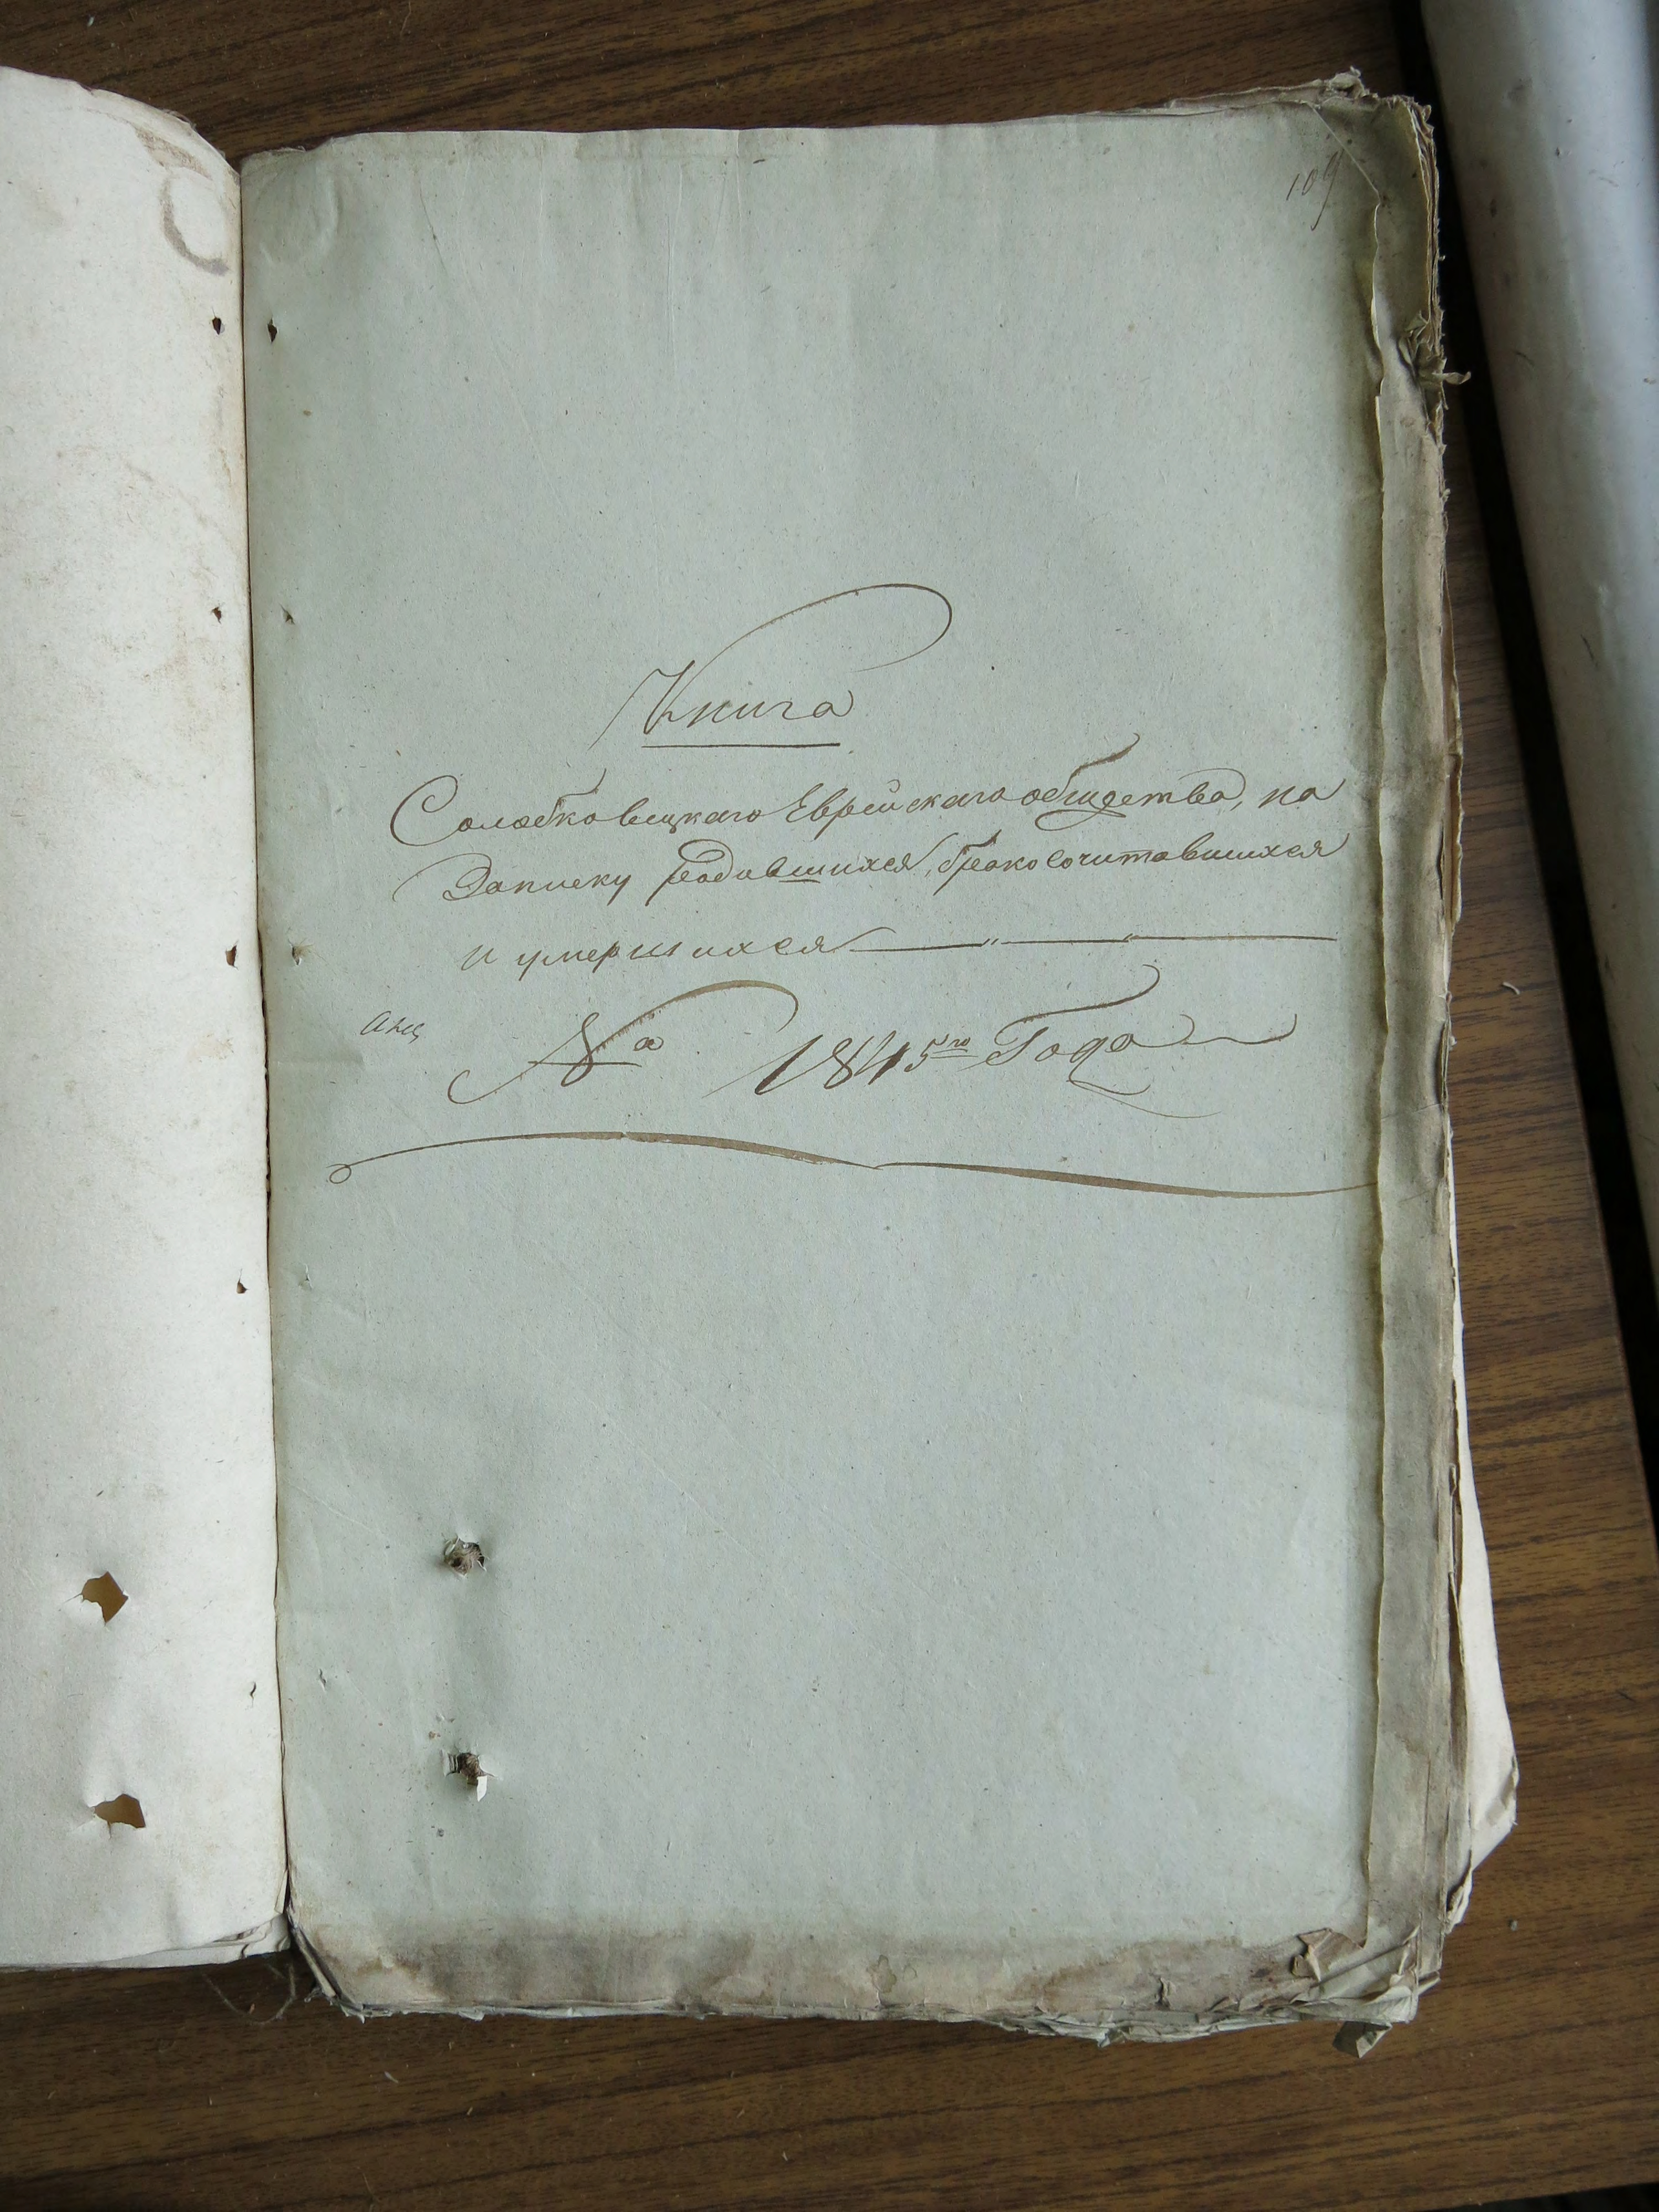 109
Книга
Солобковецкаго Еврейскаго общества, на
Записку родившихся, бракосочитавшихся
и умершихся
На 1845го Года